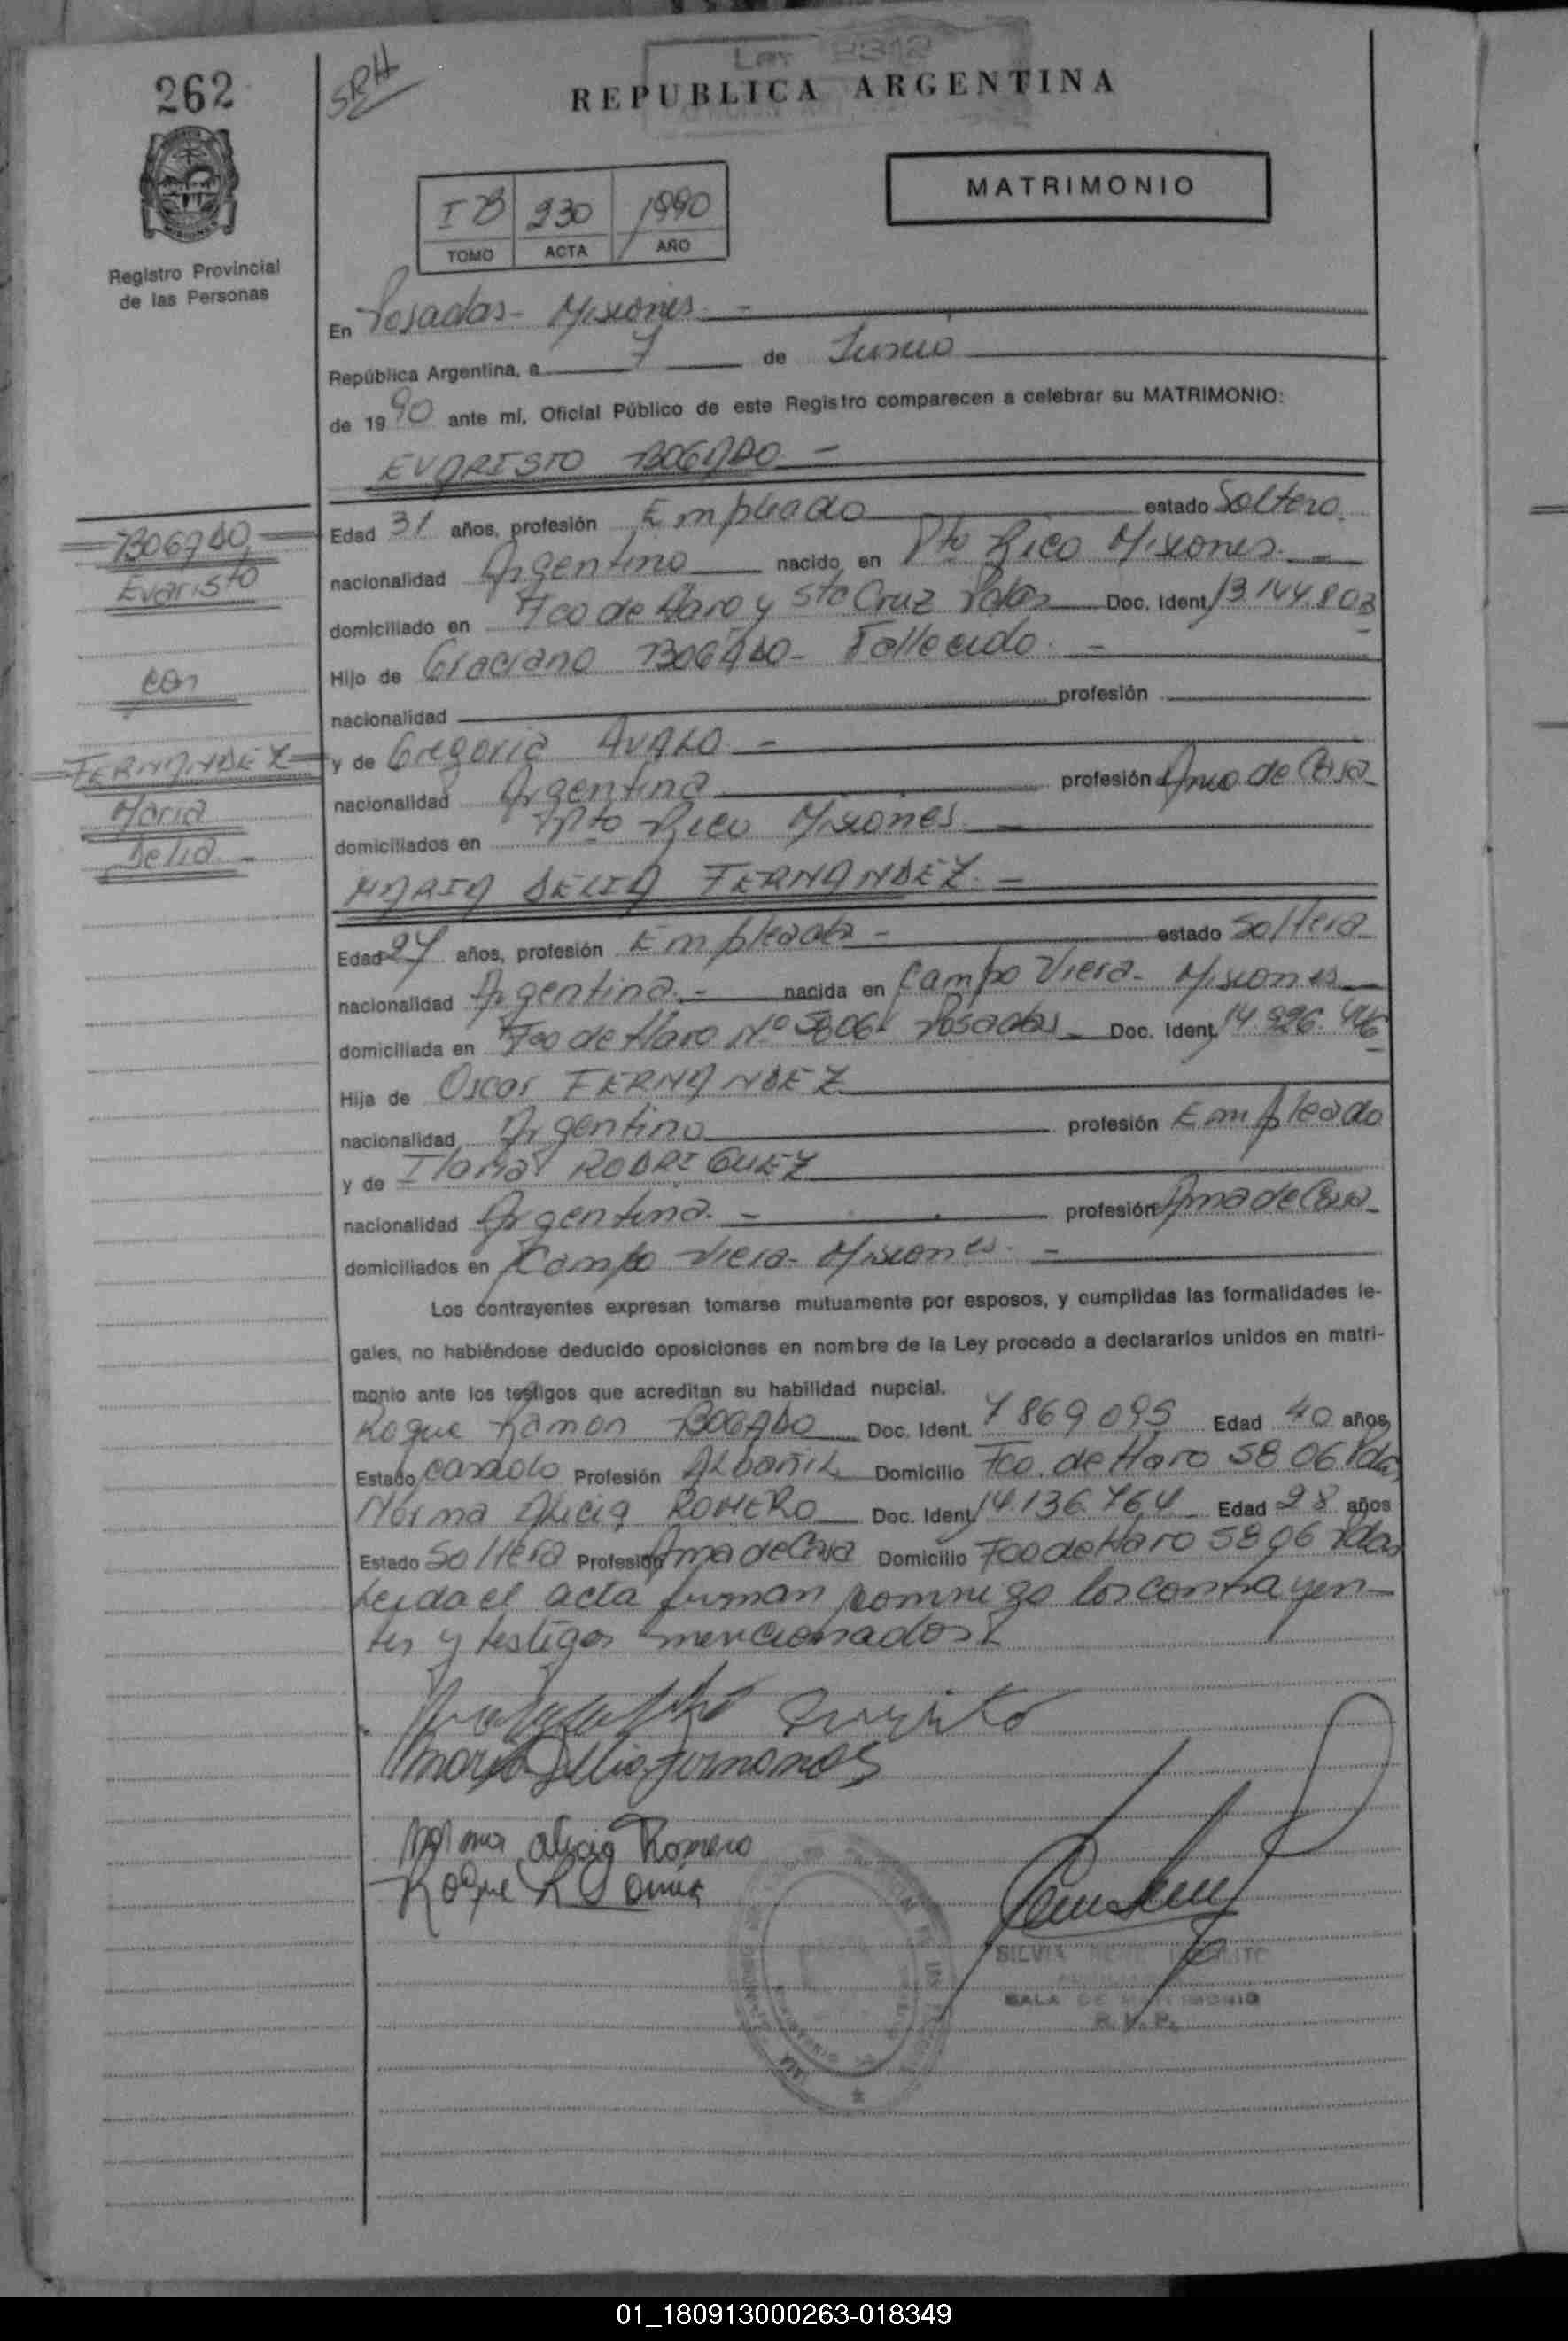 262
SRH
Ley
REPUBLICA ARGENTINA
Registro Provincial
de las Personas
I B 230 1990
TOMO ACTA AÑO
MATRIMONIO
En Posadas - Misiones. -
República Argentina, a 7 de Junio
de 1990 ante mí, Oficial Público de este Registro comparecen a celebrar su MATRIMONIO:
EVARISTO BOGADO. -
BOGADO,
Evaristo
con
FERNANDEZ
Maria
Delia. -
Edad 31 años, profesión Empleado estado Soltero.
nacionalidad Argentino nacido en Pto Rico Misiones. -
domiciliado en Fco de Haro y Sta Cruz Pdas Doc. Ident. 13.144.803
Hijo de Graciano BOGADO - Fallecido. -
nacionalidad profesión
y de Gregoria AVALO. -
nacionalidad Argentina profesión Ama de Casa
domiciliados en Pto Rico Misiones. -
MARIA DELIA FERNANDEZ. -
Edad 27 años, profesión Empleada - estado Soltera
nacionalidad Argentina. - nacida en Campo Viera - Misiones
domiciliada en Fco de Haro Nº 5806 Posadas Doc. Ident.
Hija de Oscar FERNANDEZ
nacionalidad Argentino profesión Empleado
y de RODRIGUEZ
nacionalidad Argentina. - profesión Ama de Casa
domiciliados en Campo Viera - Misiones. -
Los contrayentes expresan tomarse mutuamente por esposos, y cumplidas las formalidades le-
gales, no habiéndose deducido oposiciones en nombre de la Ley procedo a declararlos unidos en matri-
monio ante los testigos que acreditan su habilidad nupcial.
Roque Ramon BOGADO Doc. Ident. 7869095 Edad 40 años,
Estado casado Profesión Albañil Domicilio Fco. de Haro 5806 Pdas
Norma Alicia ROMERO Doc. Ident. 14.136.764 Edad 28 años
Estado Soltera Profesión Ama de Casa Domicilio Fco de Haro 5806 Pdas
Leida el acta firman conmigo los contrayen-
tes y testigos mencionados
Maria Delia Fernandes
Norma alicia Romero
Roque R
SILVIA
SALA DE MATRIMONIO
R. P. P.
01_180913000263-018349